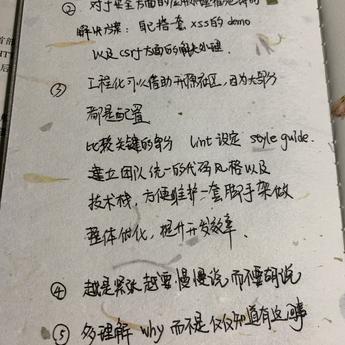 ② 对于安全方面的
解决方案：自己搭一套 xss的demo
以及csrf方面的相关处理.
③ 工程化可以借助开源社区，因为大部分
都是配置
比较关键的部分 lint 设定 style guide.
建立团队统一的代码风格以及
技术栈，方便维护一套脚手架做
整体优化，提升开发效率.
④ 越是紧张越要慢慢说而不要胡说
⑤ 多理解 why 而不是仅仅知道有这回事